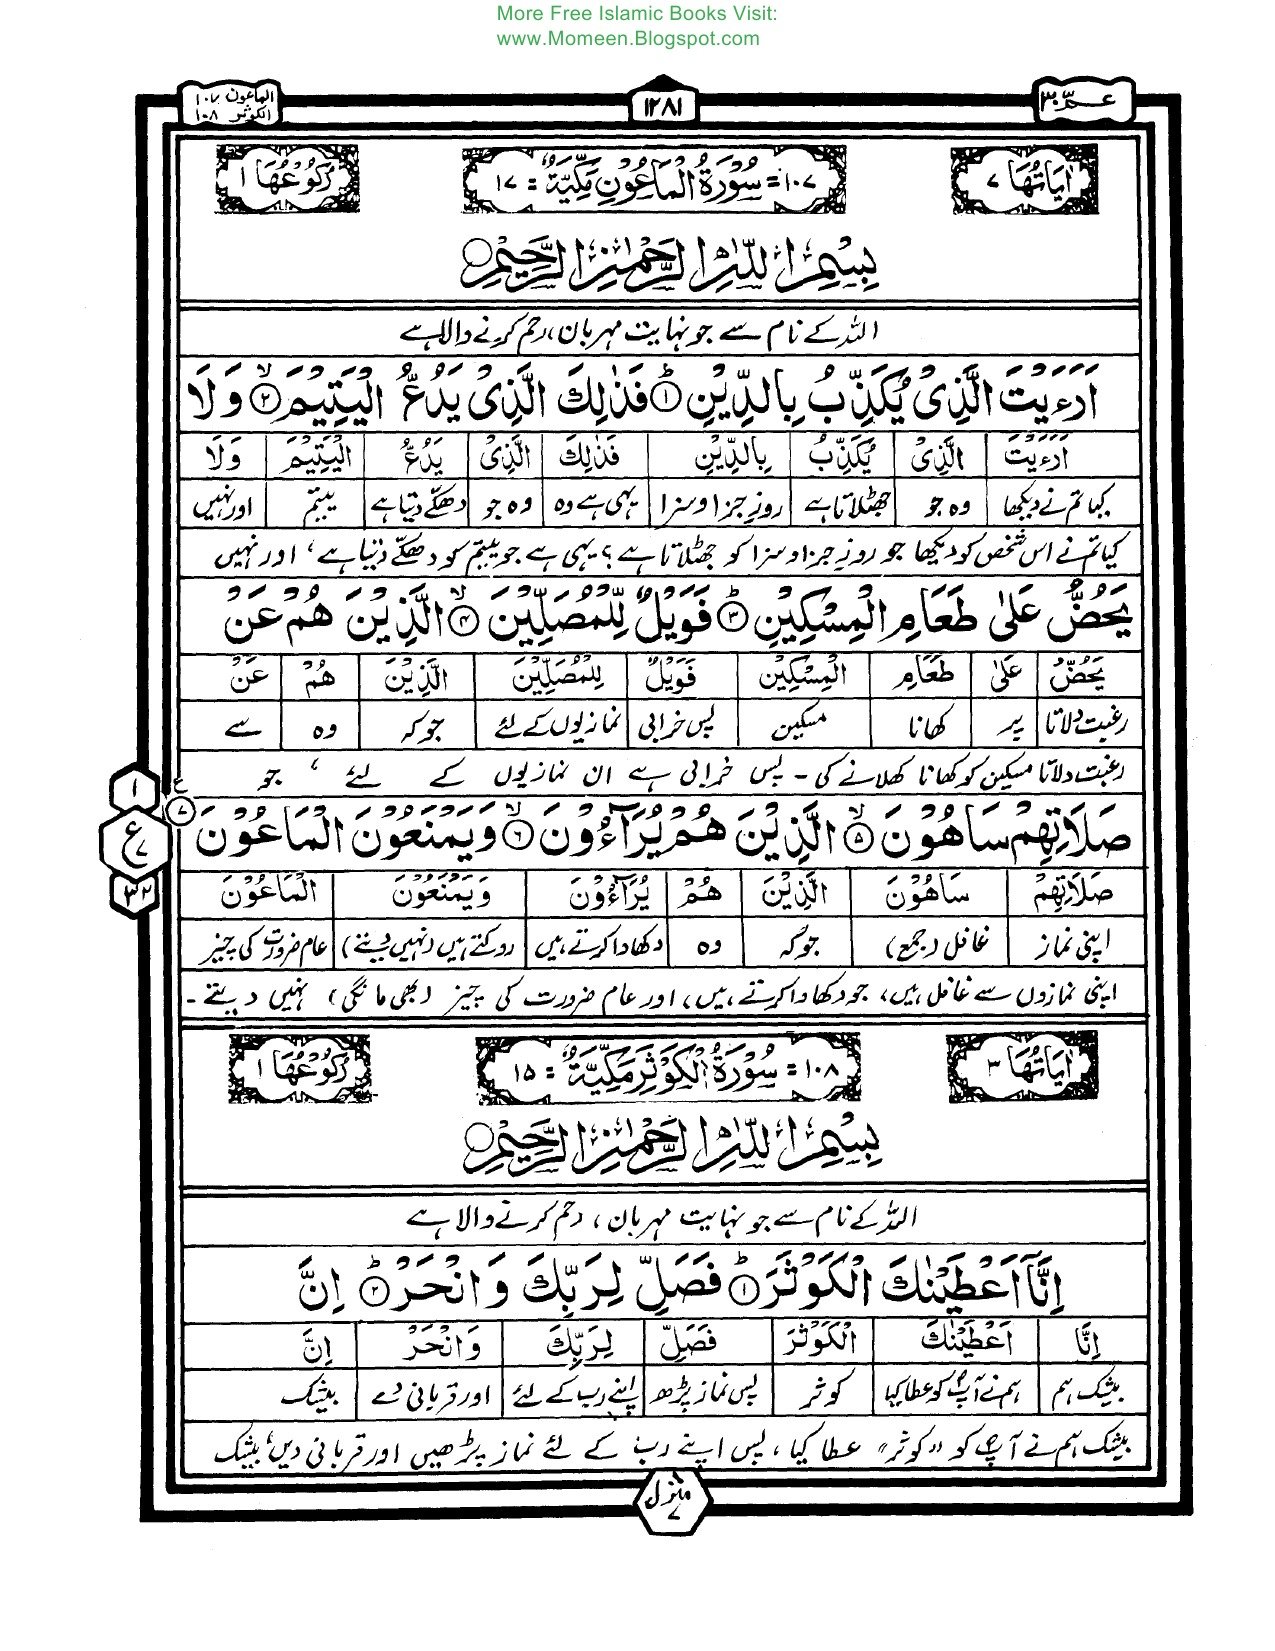 More Free Islamic Books Visit:
www.Momeen.Blogspot.com
عمّ ٣٠
١٢٨١
الماعون ١٠٧
الكوثر ١٠٨
اٰيَاتُهَا ٧
١٠٧= سُوْرَةُ الْمَاعُوْنِ مَكِّيَّةٌ = ١٧
رُكُوْعُهَا ١
بِسْمِ اللّٰهِ الرَّحْمٰنِ الرَّحِيْمِ
اللہ کے نام سے جو نہایت مہربان، رحم کرنے والا ہے
اَرَءَيْتَ الَّذِيْ يُكَذِّبُ بِالدِّيْنِ ؕ﴿١﴾ فَذٰلِكَ الَّذِيْ يَدُعُّ الْيَتِيْمَ ۙ﴿٢﴾ وَلَا
اَرَءَيْتَ الَّذِيْ يُكَذِّبُ بِالدِّيْنِ فَذٰلِكَ الَّذِيْ يَدُعُّ الْيَتِيْمَ وَلَا
کیا تم نے دیکھا وہ جو جھٹلاتا ہے روزِ جزا وسزا یہی ہے وہ وہ جو دھکے دیتا ہے یتیم اور نہیں
کیا تم نے اس شخص کو دیکھا جو روزِ جزا وسزا کو جھٹلاتا ہے؟ یہی ہے جو یتیم کو دھکے دیتا ہے، اور نہیں
يَحُضُّ عَلٰى طَعَامِ الْمِسْكِيْنِ ؕ﴿٣﴾ فَوَيْلٌ لِّلْمُصَلِّيْنَ ۙ﴿٤﴾ الَّذِيْنَ هُمْ عَنْ
يَحُضُّ عَلٰى طَعَامِ الْمِسْكِيْنِ فَوَيْلٌ لِّلْمُصَلِّيْنَ الَّذِيْنَ هُمْ عَنْ
رغبت دلاتا پر کھانا مسکین پس خرابی نمازیوں کے لئے جو کہ وہ سے
رغبت دلاتا مسکین کو کھانا کھلانے کی - پس خرابی ہے ان نمازیوں کے لئے، جو
صَلَاتِهِمْ سَاهُوْنَ ۙ﴿٥﴾ الَّذِيْنَ هُمْ يُرَآءُوْنَ ۙ﴿٦﴾ وَيَمْنَعُوْنَ الْمَاعُوْنَ ﴿٧﴾ ع
١
ع ٧
٣٢
صَلَاتِهِمْ سَاهُوْنَ الَّذِيْنَ هُمْ يُرَآءُوْنَ وَيَمْنَعُوْنَ الْمَاعُوْنَ
اپنی نماز غافل (جمع) جو کہ وہ دکھاوا کرتے ہیں روکتے ہیں (نہیں دیتے) عام ضرورت کی چیز
اپنی نمازوں سے غافل ہیں، جو دکھاوا کرتے ہیں، اور عام ضرورت کی چیز (بھی مانگی) نہیں دیتے -
اٰيَاتُهَا ٣
١٠٨= سُوْرَةُ الْكَوْثَرِ مَكِّيَّةٌ = ١٥
رُكُوْعُهَا ١
بِسْمِ اللّٰهِ الرَّحْمٰنِ الرَّحِيْمِ
اللہ کے نام سے جو نہایت مہربان، رحم کرنے والا ہے
اِنَّآ اَعْطَيْنٰكَ الْكَوْثَرَ ؕ﴿١﴾ فَصَلِّ لِرَبِّكَ وَانْحَرْ ؕ﴿٢﴾ اِنَّ
اِنَّا اَعْطَيْنٰكَ الْكَوْثَرَ فَصَلِّ لِرَبِّكَ وَانْحَرْ اِنَّ
بیشک ہم ہم نے آپؐ کو عطا کیا کوثر پس نماز پڑھ اپنے رب کے لئے اور قربانی دے بیشک
بیشک ہم نے آپؐ کو "کوثر" عطا کیا، پس اپنے رب کے لئے نماز پڑھیں اور قربانی دیں، بیشک
منزل ٧